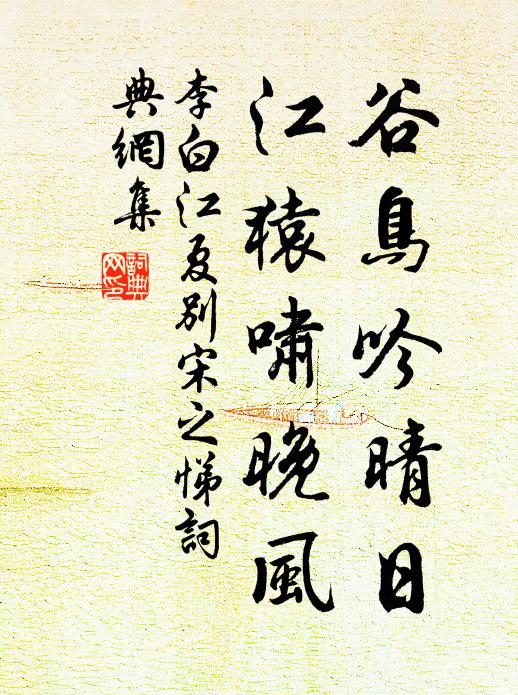 谷鳥吟晴日
江猿嘯晚風
李白江夏別宋之悌詞
典網集
詞典網印